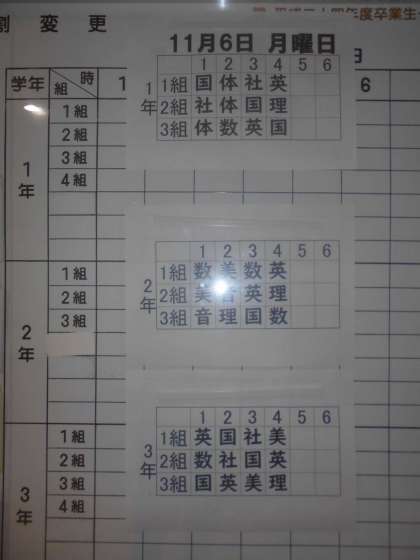 割 変 更
平成二十四年度卒業生
11月6日 月曜日
学年 組 時 1 6
1年
1 2 3 4 5 6
1組 国 体 社 英
2組 社 体 国 理
3組 体 数 英 国
1年
1組
2組
3組
4組
2年
1 2 3 4 5 6
1組 数 美 数 英
2組 美 音 英 理
3組 音 理 国 数
2年
1組
2組
3組
3年
1 2 3 4 5 6
1組 英 国 社 美
2組 数 社 国 英
3組 国 英 美 理
3年
1組
2組
3組
4組